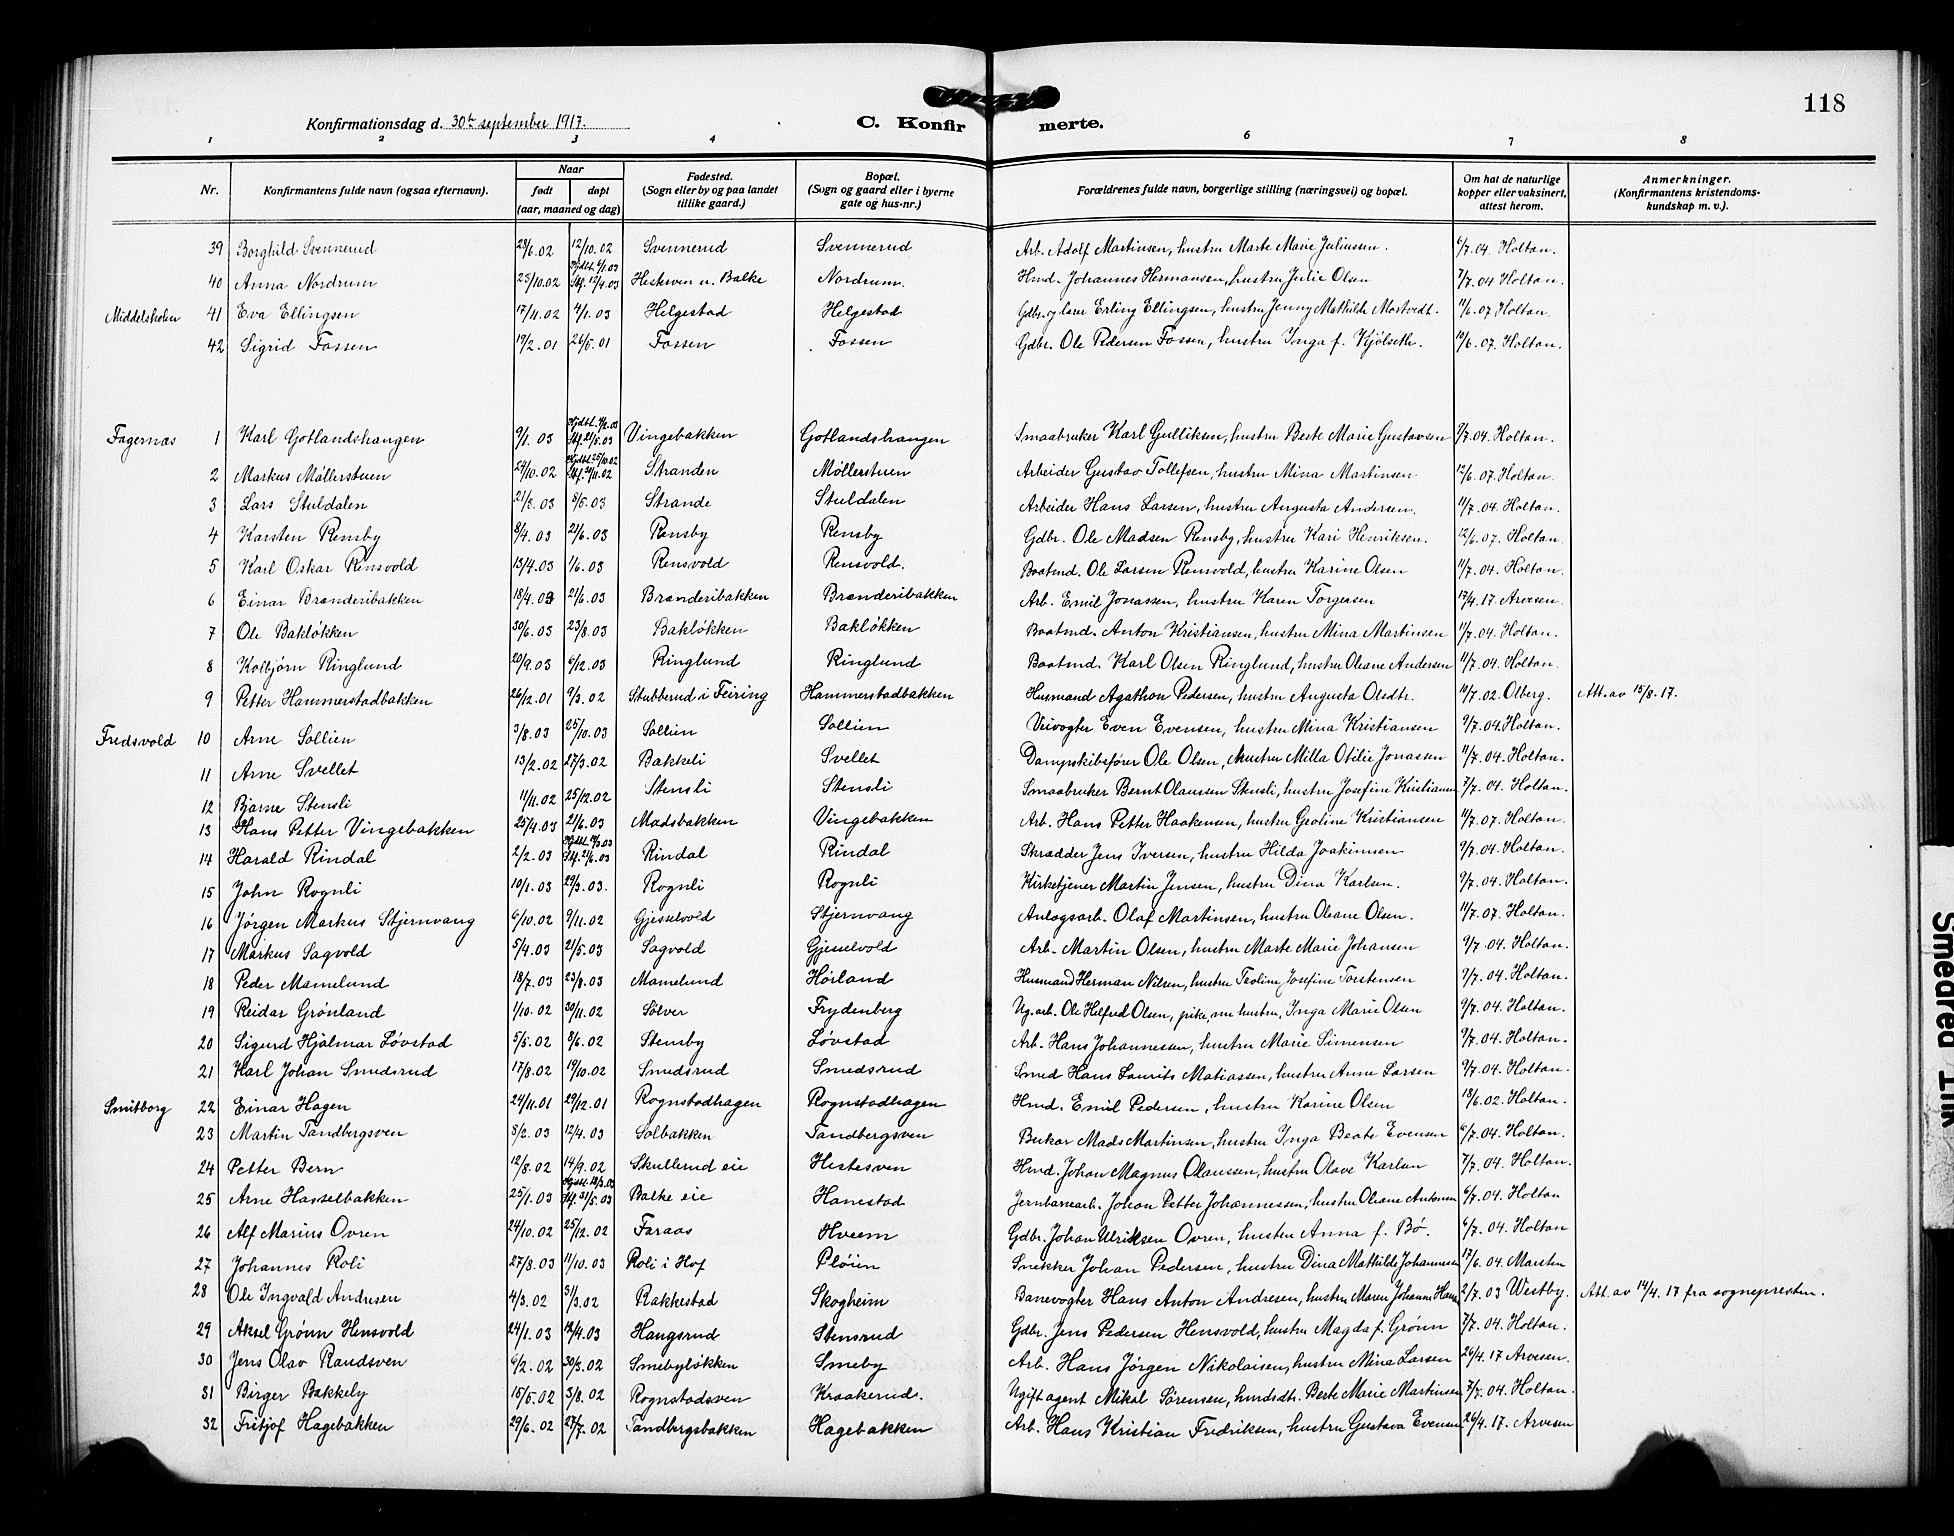 118
Konfirmationsdag d. 30te september 1917. C. Konfirmerte.
1 2 3 4 5 6 7 8
Nr. Konfirmantens fulde navn (ogsaa efternavn). Naar født døpt (aar, maaned og dag) Fødested. (Sogn eller by og paa landet tillike gaard.) Bopæl. (Sogn og gaard eller i byerne gate og hus-nr.) Forældrenes fulde navn, borgerlige stilling (næringsvei) og bopæl. Om hat de naturlige kopper eller vaksinert, attest herom. Anmerkninger. (Konfirmantens kristendomskundskap m. v.).
39 Borghild Svennerud 23/6.02 12/10.02 Svennerud Svennerud Arb. Adolf Martinsen, hustru Marte Marie Juliussen. 6/7.04. Holtan.
40 Anna Nordrum 25/10.02 Hjdbt. 6/1.03 Stf. 12/4.03 Hesteven u. Balke Nordrum. Hmd. Johannes Hermansen, hustru Julie Olsen 7/7.04 Holtan.
Middelskolen 41 Eva Ellingsen 17/11.02 4/1.03 Helgestad Helgestad Gdbr. og lærer Erling Ellingsen, hustru Jenny Mathilde Mostvedt. 11/6.07 Holtan.
42 Sigrid Fossen 19/2.01 26/5.01 Fossen Fossen Gdbr. Ole Pedersen Fossen, hustru Inga f. Kjölseth. 10/6.07. Holtan.
Fagernæs 1 Karl Gotlandshangen 9/1.03 Vingebakken Gotlandshangen Smaabruker Karl Gulliksen, hustru Berte Marie Gustavsen 9/7.04. Holtan.
2 Markus Møllerstuen 24/10.02 Hjdbt. 25/10.02 Stranden Møllerstuen Arbeider Gustav Tollefsen, hustru Mina Martinsen 12/6.07. Holtan.
3 Lars Stuldalen 21/3.03 Strande Stuldalen Arbeider Hans Larsen, hustru Augusta Andersen. 11/7.04. Holtan.
4 Karsten Rensby 8/4.03 21/6.03 Rensby Rensby Gdbr. Ole Madsen Rensby, hustru Kari Henriksen. 12/6.07. Holtan.
5 Karl Oskar Rensvold 13/4.03 1/6.03 Rensvold Rensvold. Baatmd. Ole Larsen Rensvold, hustru Karine Olsen 11/7.04. Holtan.
6 Einar Brænderibakken 18/4.03 21/6.03 Brænderibakken Brænderibakken Arb. Emil Jonassen, hustru Karen Torgersen 17/4.17. Arvesen.
7 Ole Bakløkken 30/6.03 23/8.03 Bakløkken Bakløkken Baatmd. Anton Kristiansen, hustru Mina Martinsen 11/7.04. Holtan.
8 Kolbjørn Ringlund 20/9.03 6/12.03 Ringlund Ringlund Baatmd. Karl Olsen Ringlund, hustru Oleane Andersen 11/7.04. Holtan.
9 Petter Hammerstadbakken 26/12.01 9/3.02 Stubberud i Feiring Hammerstadbakken Husmand Agathon Pedersen, hustru Augusta Olsdtr. 10/7.02. Olberg. Att. av 15/8.17.
Fredsvold 10 Arne Sollien 3/8.03 25/10.03 Sollien Sollien Veivogter Even Evensen, hustru Mina Kristiansen 9/7.04. Holtan.
11 Arne Svellet 13/2.02 27/3.02 Bakkeli Svellet Dampskibsfører Ole Olsen, hustru Milla Otilie Jonassen 11/7.04. Holtan.
12 Bjarne Stensli 11/11.02 25/12.02 Stensli Stensli Smaabruker Bernt Olaussen Stensli, hustru Josefine Kristiansen 7/7.04. Holtan.
13 Hans Petter Vingebakken 25/4.03 21/6.03 Madsbakken Vingebakken Arb. Hans Petter Haakensen, hustru Groline Kristiansen 11/7.07. Holtan.
14 Harald Rindal 2/2.03 Rindal Rindal Skrædder Jens Iversen, hustru Hilda Joakimsen 9/7.04. Holtan.
15 John Rognli 10/1.03 29/3.03. Rognli Rognli Kirketjener Martin Jensen, hustru Dina Karlsen. 9/7.04. Holtan.
16 Jørgen Markus Stjernvang 6/10.02 9/11.02 Gjesselvold Stjernvang Anlægsarb. Olaf Martinsen, hustru Oleane Olsen. 11/7.07. Holtan.
17 Markus Sagvold 5/4.03 21/5.03 Sagvold Gjesselvold Arb. Martin Olsen, hustru Marte Marie Johansen 9/7.04. Holtan.
18 Peder Mamelund 18/7.03 23/8.03 Mamelund Hørland Husmand Herman Nilsen, hustru Teoline Josefine Torstensen 9/7.04. Holtan.
19 Reidar Grønland 1/10.02 30/11.02 Sølver Frydenberg Ug. arb. Ole Hilfred Olsen, pike, nu hustru, Inga Marie Olsen 9/7.04. Holtan.
20 Sigurd Hjalmar Løvstad 5/5.02 8/6.02 Stensby Løvstad Arb. Hans Johannessen, hustru Marie Simensen 9/7.04. Holtan.
21 Karl Johan Smedsrud 17/8.02 19/10.02 Smedsrud Smedsrud Smed Hans Laurits Matiassen, hustru Anne Larsen 9/7.04. Holtan.
Smitborg 22 Einar Hagen 24/11.01 29/12.01 Rognstadhagen Rognstadhagen Hmd. Emil Pedersen, hustru Karine Olsen 18/6.02. Holtan.
23 Martin Tandbergsven 8/2.03 12/4.03 Solbakken Tandbergsven Bruker Mads Martinsen, hustru Inga Beate Evensen 6/7.04. Holtan.
24 Petter Bern 12/8.02 14/9.02 Skullerud eie Hestesven Hmd. Johan Magnus Olaussen, hustru Olave Karlsen 7/7.04. Holtan.
25 Arne Hasselbakken 25/1.03 Stf. 31/5.03 Balke eie Hanestad Jernbanearb. Johan Petter Johannessen, hustru Oleane Antonsen 6/7.04. Holtan
26 Alf Marius Ovren 24/10.02 25/12.02 Faraas Hveem Gdbr. Johan Ulriksen Ovren, hustru Anna f. Bø. 6/7.04. Holtan
27 Johannes Roli 27/8.03 11/10.03 Roli i Hof Pløien Snekker Johan Pedersen, hustru Dina Mathilde Johannessen 17/6.04. Marsten
28 Ole Ingvald Andresen 4/3.02 31/3.02 Rakkestad Skogheim Banevogter Hans Anton Andresen, hustru Maren Johanne Hansen 2/7.03 Westby. Att. av 14/4.17 fra sognepresten.
29 Aksel Grønn Hensvold 24/1.03 13/4.03 Haugsrud Stensrud Gdbr. Jens Pedersen Hensvold, hustru Magda f. Grønn 7/7.04. Holtan.
30 Jens Olav Randsven 6/2.02 30/3.02 Smebyløkken Smeby Arb. Hans Jørgen Nikolaisen, hustru Mina Larsen 26/4.17 Arvesen.
31 Birger Bakkely 15/5.02 3/8.02 Rognstadsven Kraakerud. Ugift agent Mikal Sørensen, hmdsdtr. Berte Marie Martinsen 7/7.04. Holtan.
32 Fritjof Hagebakken 29/6.02 27/7.02 Tandbergsbakken Hagebakken Arb. Hans Kristian Fredriksen, hustru Gustava Evensen 26/4.17. Arvesen
Smeared Ink